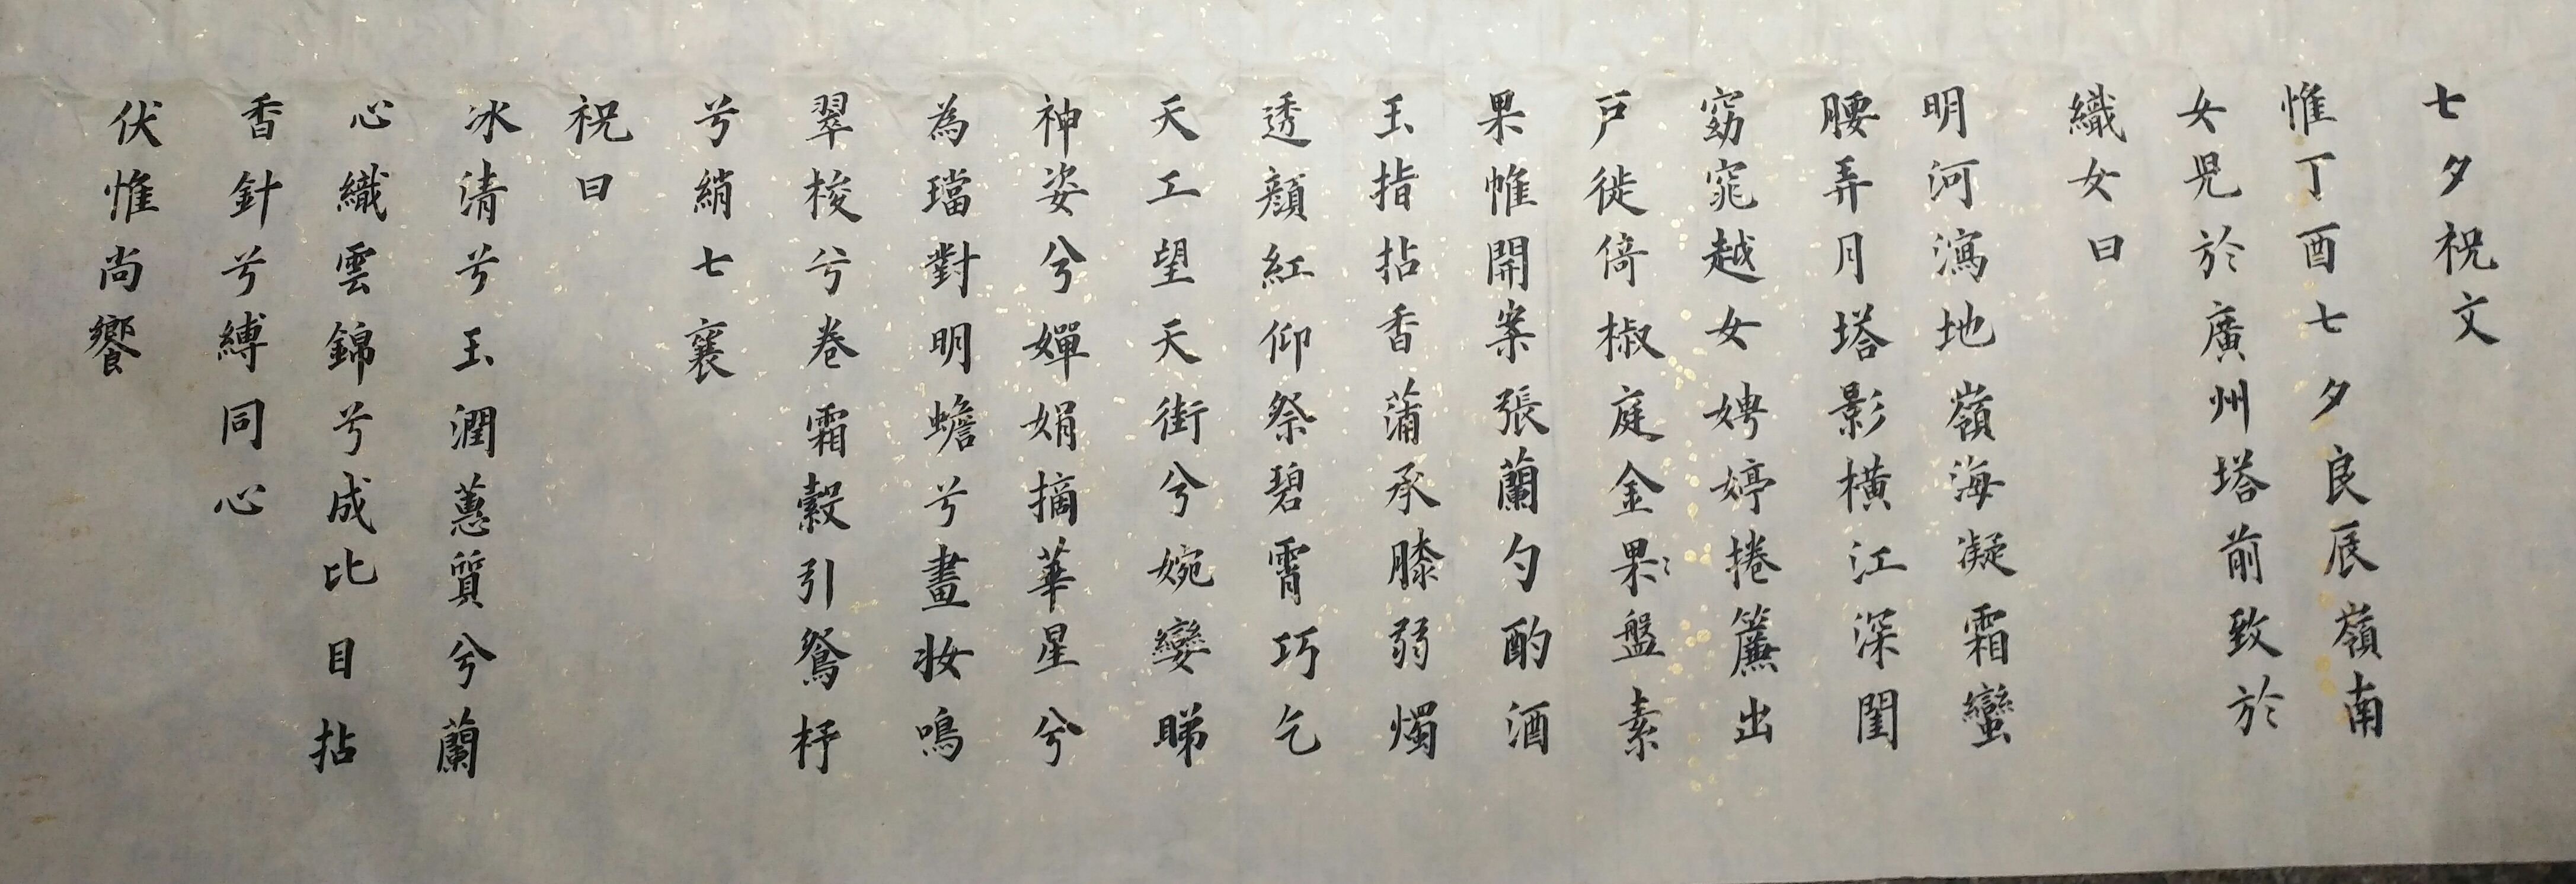 七夕祝文
惟丁酉七夕良辰嶺南
女兒於廣州塔前致於
織女曰
明河瀉地嶺海凝霜蠻
腰弄月塔影橫江深閨
窈窕越女娉婷捲簾出
戶徙倚椒庭金果盤素
果帷開案張蘭勺酌酒
玉指拈香蒲承膝弱燭
透顏紅仰祭碧霄巧乞
天工望天街兮婉孌睇
神姿兮嬋娟摘華星兮
為璫對明蟾兮畫妝鳴
翠梭兮卷霜縠引鴛杼
兮綃七襄
祝曰
冰清兮玉潤蕙質兮蘭
心織雲錦兮成比目拈
香針兮縛同心
伏惟尚饗